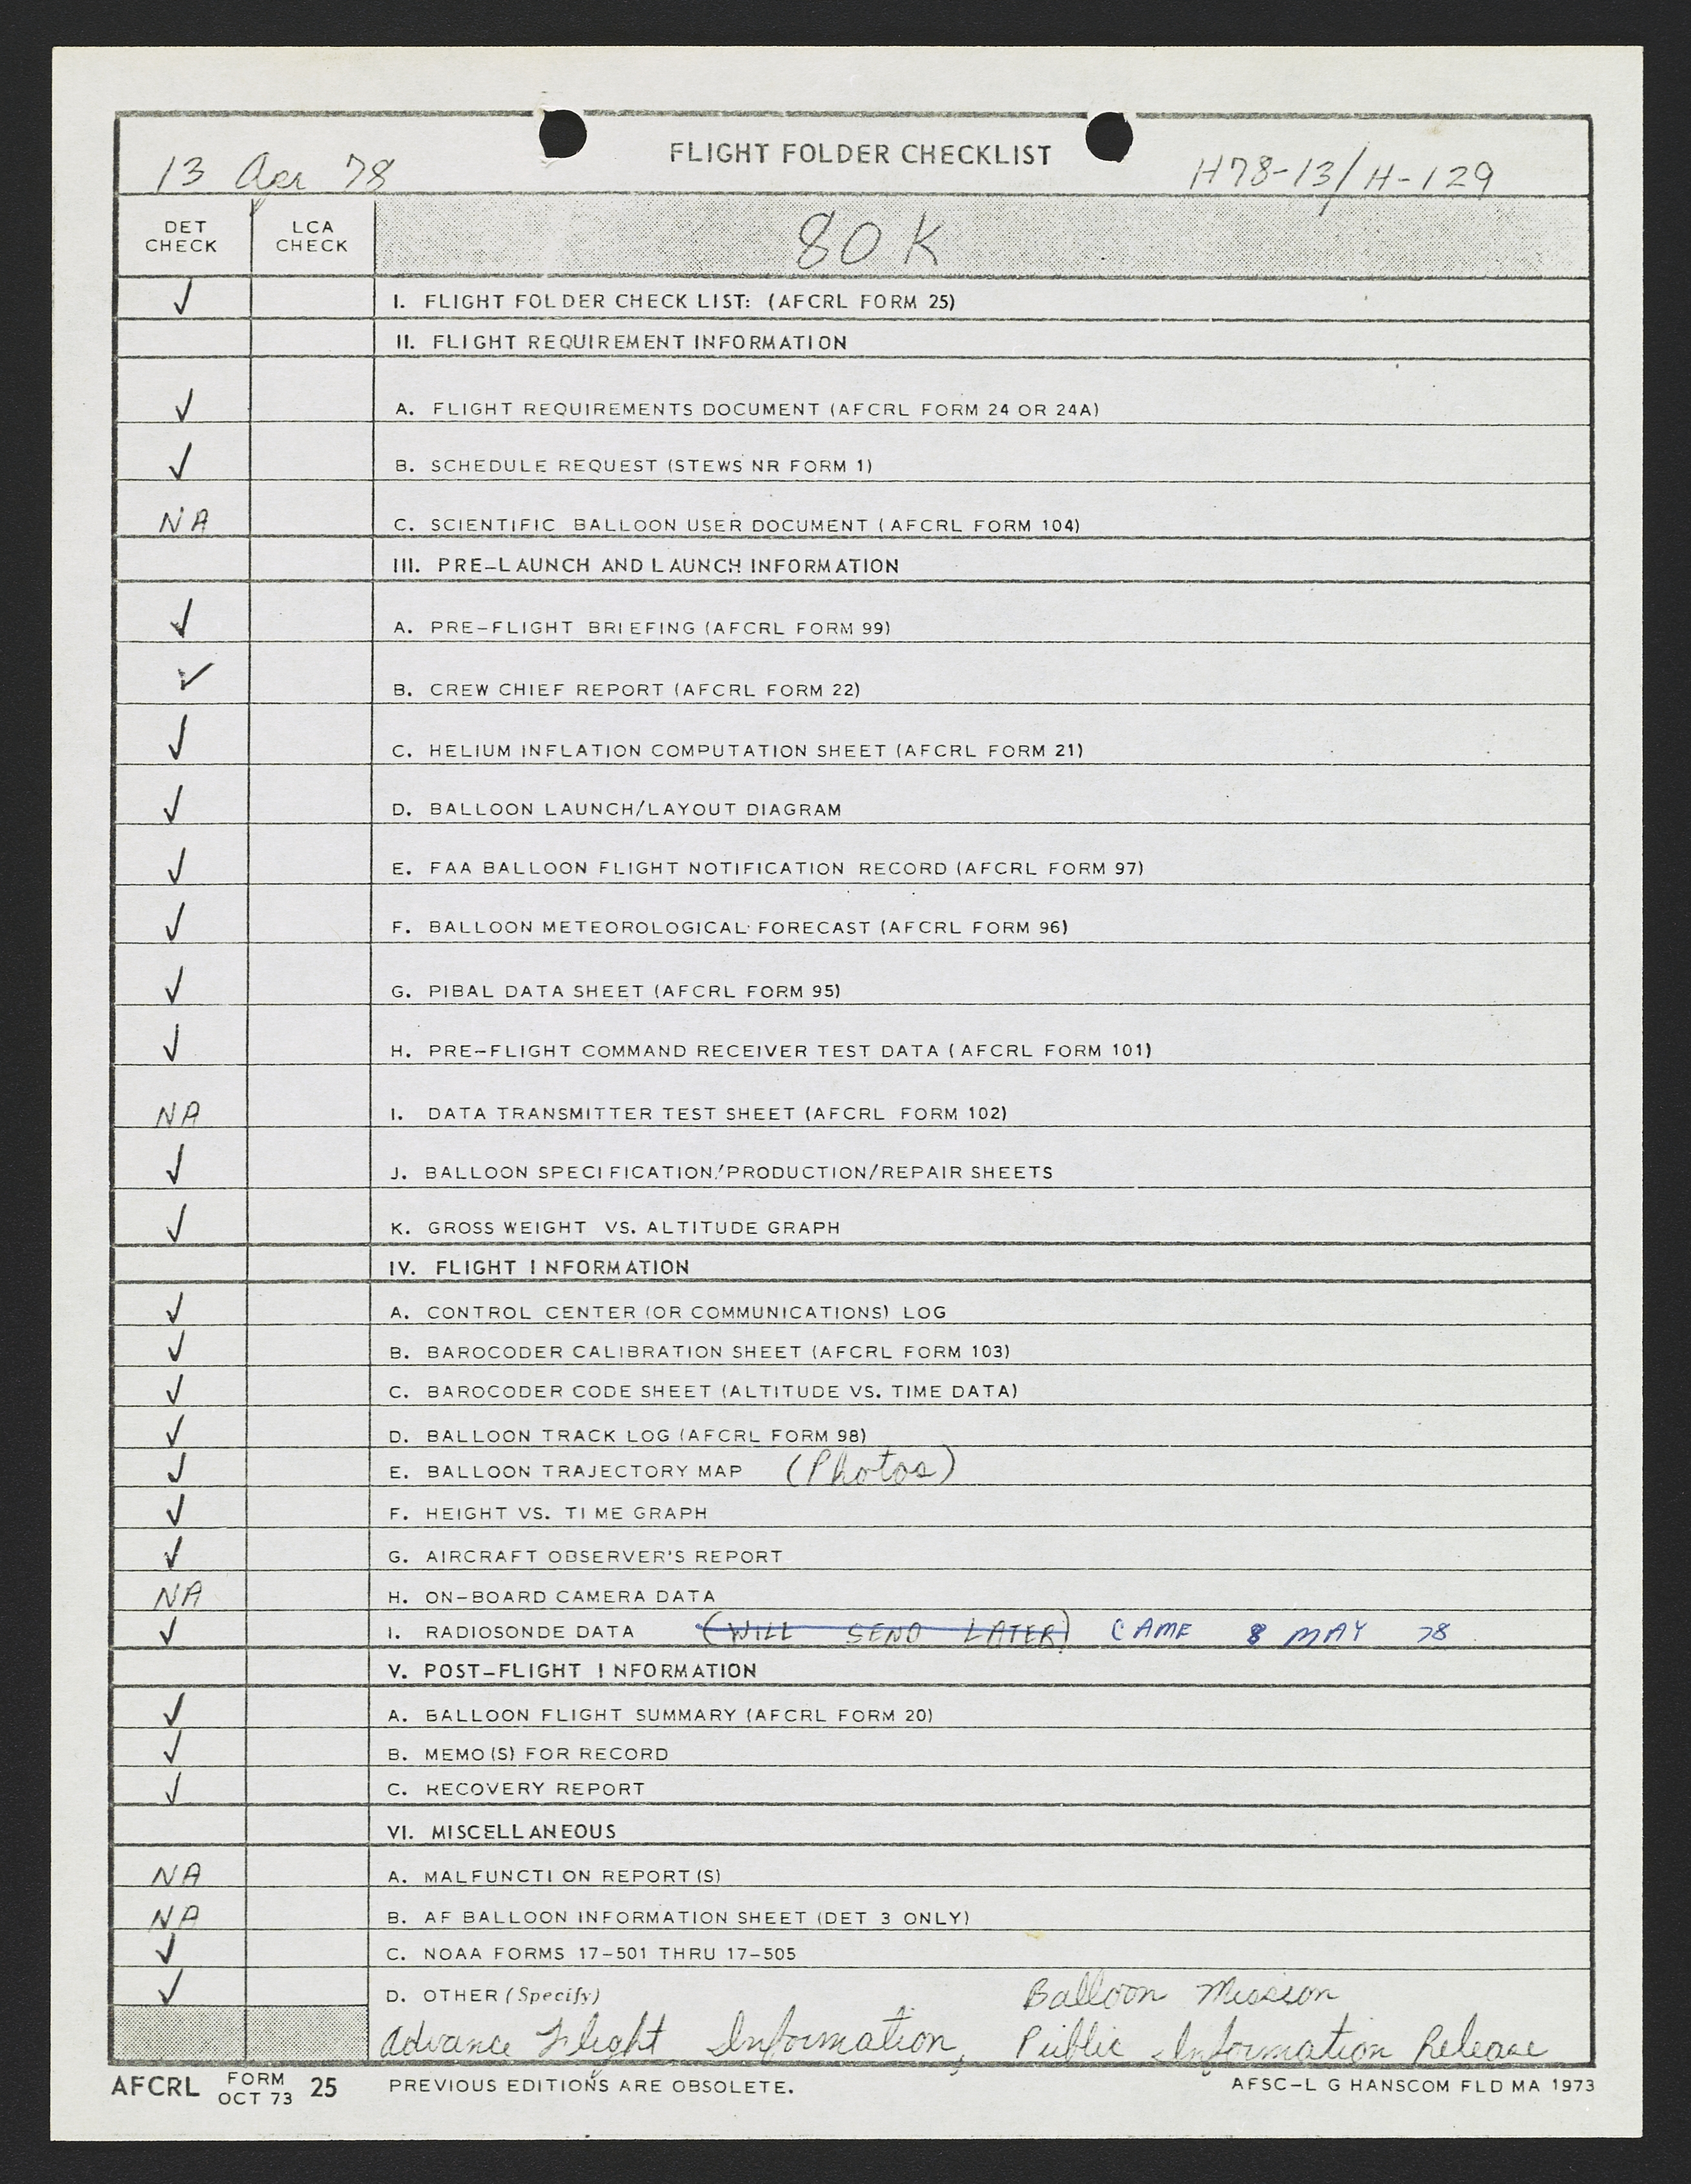 FLIGHT FOLDER CHECKLIST
13 Apr 78 H78-13/H-129
DET CHECK LCA CHECK 80 K
✓ I. FLIGHT FOLDER CHECK LIST: (AFCRL FORM 25)
II. FLIGHT REQUIREMENT INFORMATION
✓ A. FLIGHT REQUIREMENTS DOCUMENT (AFCRL FORM 24 OR 24A)
✓ B. SCHEDULE REQUEST (STEWS NR FORM 1)
NA C. SCIENTIFIC BALLOON USER DOCUMENT (AFCRL FORM 104)
III. PRE-LAUNCH AND LAUNCH INFORMATION
✓ A. PRE-FLIGHT BRIEFING (AFCRL FORM 99)
✓ B. CREW CHIEF REPORT (AFCRL FORM 22)
✓ C. HELIUM INFLATION COMPUTATION SHEET (AFCRL FORM 21)
✓ D. BALLOON LAUNCH/LAYOUT DIAGRAM
✓ E. FAA BALLOON FLIGHT NOTIFICATION RECORD (AFCRL FORM 97)
✓ F. BALLOON METEOROLOGICAL FORECAST (AFCRL FORM 96)
✓ G. PIBAL DATA SHEET (AFCRL FORM 95)
✓ H. PRE-FLIGHT COMMAND RECEIVER TEST DATA (AFCRL FORM 101)
NA I. DATA TRANSMITTER TEST SHEET (AFCRL FORM 102)
✓ J. BALLOON SPECIFICATION/PRODUCTION/REPAIR SHEETS
✓ K. GROSS WEIGHT VS. ALTITUDE GRAPH
IV. FLIGHT INFORMATION
✓ A. CONTROL CENTER (OR COMMUNICATIONS) LOG
✓ B. BAROCODER CALIBRATION SHEET (AFCRL FORM 103)
✓ C. BAROCODER CODE SHEET (ALTITUDE VS. TIME DATA)
✓ D. BALLOON TRACK LOG (AFCRL FORM 98)
✓ E. BALLOON TRAJECTORY MAP (Photos)
✓ F. HEIGHT VS. TIME GRAPH
✓ G. AIRCRAFT OBSERVER'S REPORT
NA H. ON-BOARD CAMERA DATA
✓ I. RADIOSONDE DATA (WILL SEND LATER) CAME 8 MAY 78
V. POST-FLIGHT INFORMATION
✓ A. BALLOON FLIGHT SUMMARY (AFCRL FORM 20)
✓ B. MEMO(S) FOR RECORD
✓ C. RECOVERY REPORT
VI. MISCELLANEOUS
NA A. MALFUNCTION REPORT(S)
NA B. AF BALLOON INFORMATION SHEET (DET 3 ONLY)
✓ C. NOAA FORMS 17-501 THRU 17-505
✓ D. OTHER (Specify) Balloon Mission
Advance Flight Information, Public Information Release
AFCRL FORM OCT 73 25 PREVIOUS EDITIONS ARE OBSOLETE. AFSC-L G HANSCOM FLD MA 1973